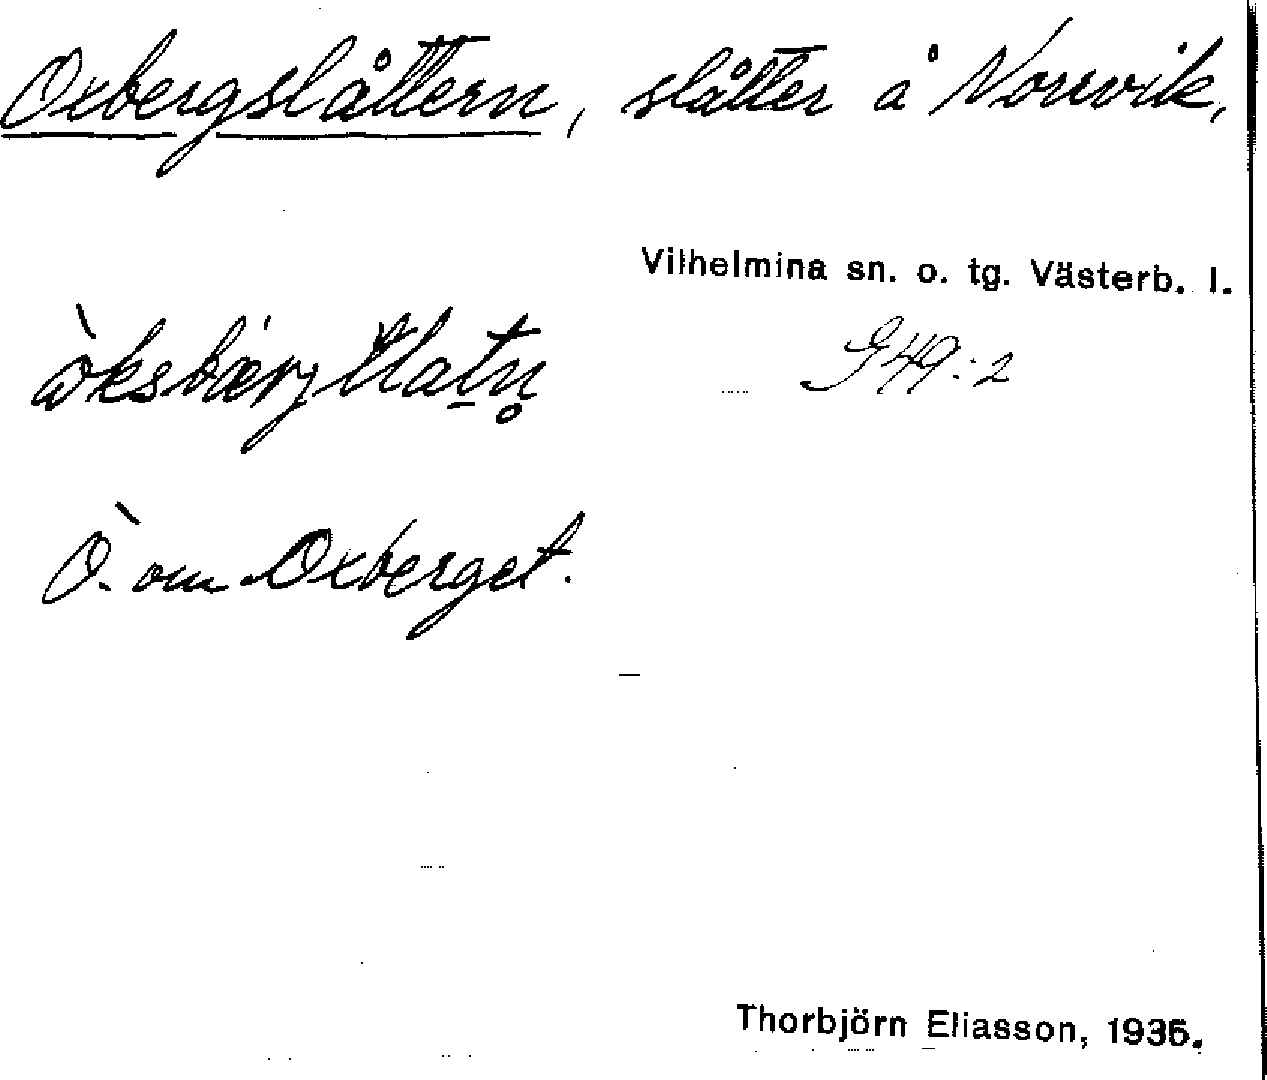 Oxbergslåttern, slåtter å Norrvik,
Vilhelmina sn. o. tg. Västerb. l.
949:2
Ö. om Oxberget.
Thorbjörn Eliasson, 1935.